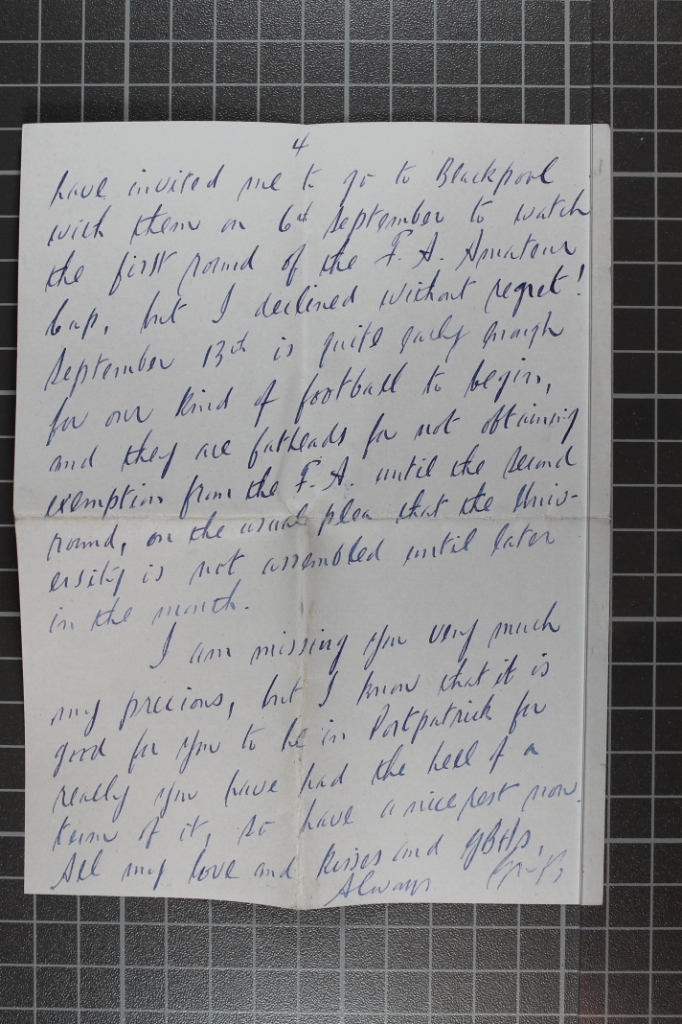 4
have invited me to go to Blackpool
with them on 6th September to watch
the first round of the F. A. Amateur
Cup, but I declined without regret!
September 13th is quite early enough
for our kind of football to begin,
and they are fatheads for not obtaining
exemption from the F. A. until the second
round, on the usual plea that the Univ-
ersity is not assembled until later
in the month.
I am missing you very much
my precious, but I know that it is
good for you to be in Portpatrick for
really you have had the hell of a
term of it, so have a nice rest now.
All my love and kisses and
Always